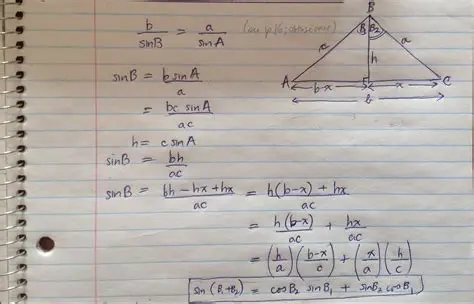 b/sinB = a/sinA
sinB = b sinA / a
= bc sinA / ac
h = c sinA
sinB = bh / ac
sinB = bh - hx + hx / ac = h(b-x) + hx / ac
= h(b-x) / ac + hx / ac
= (h/a) (b-x/c) + (x/a) (h/c)
sin(B₁+B₂) = cosB₂ sinB₁ + sinB₂ cosB₁
B
B₁ B₂
c a
h
A C
b-x x
b